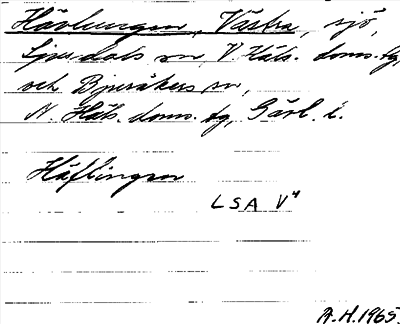 Hävlingen, Västra, sjö,
Ljusdals sn V. Häls. doms. tg,
och Bjuråkers sn,
N. Häls. doms. tg, Gävl. l.
Häflingen
LSA V4
A.H. 1965.